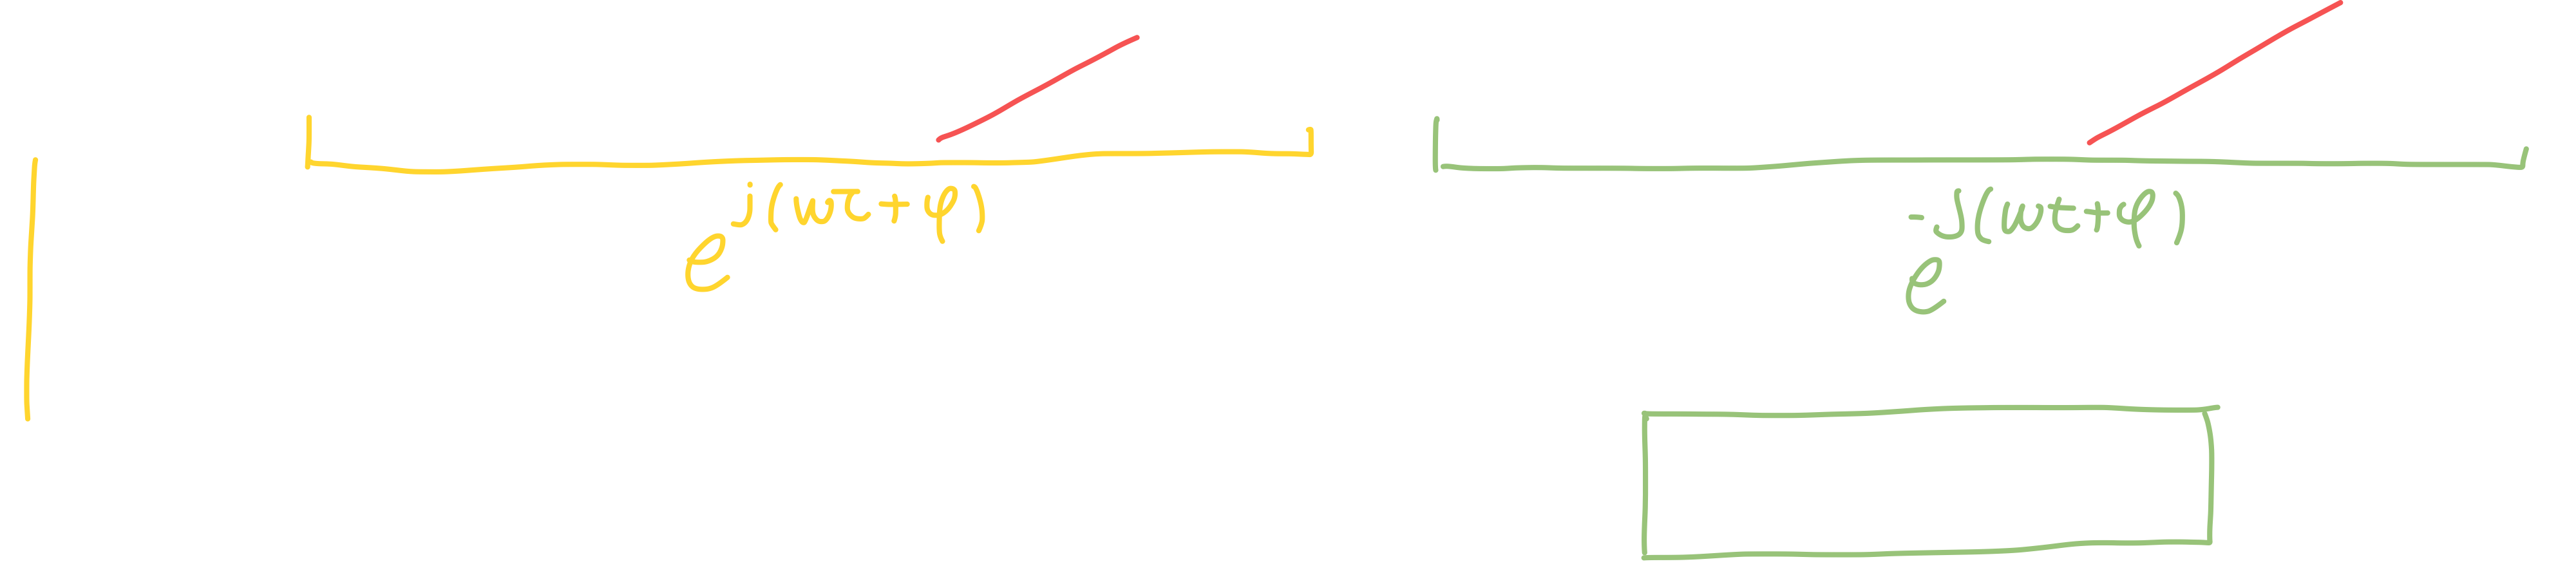 e^{j(ωτ+φ)}
e^{-j(ωt+φ)}